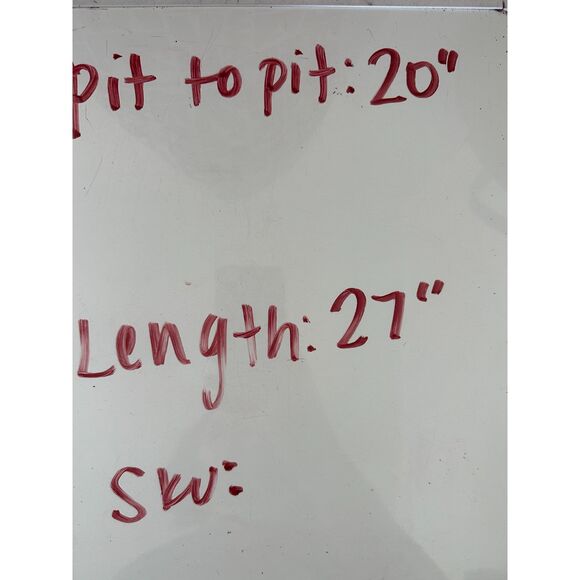 pit to pit: 20"
Length: 27"
SKU: